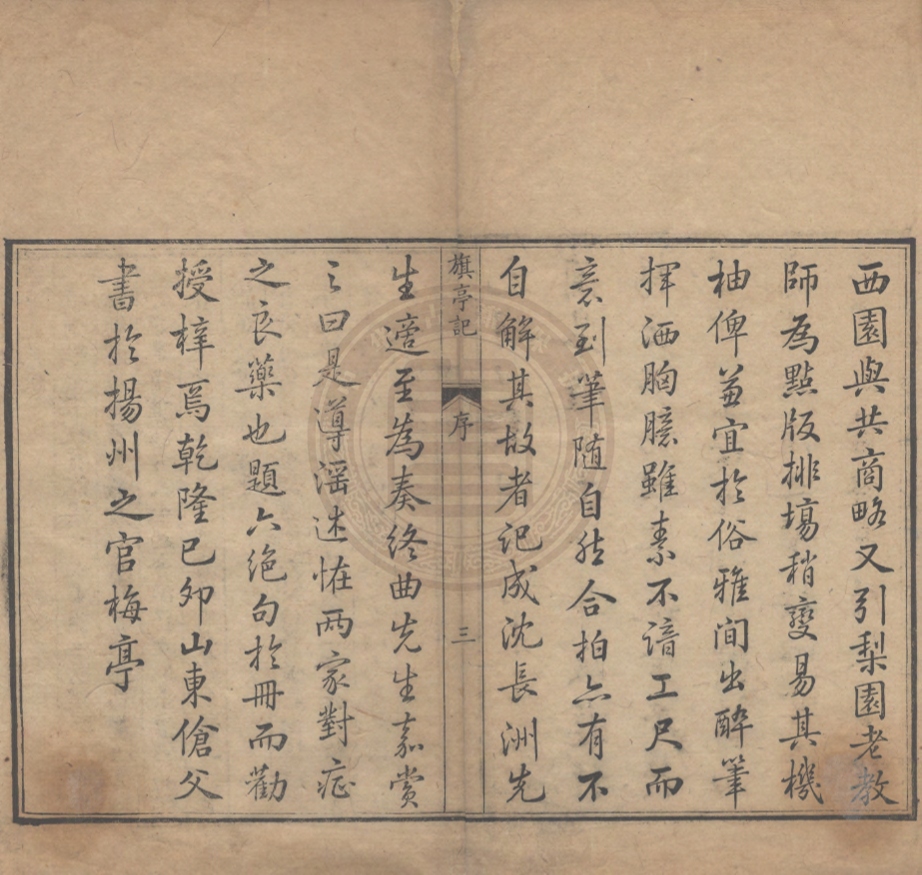 西園與共商略又引梨園老教
師為點版排場稍變易其機
柚俾兼宜於俗雅間出醉筆
揮洒胸臆雖素不諳工尺而
意到筆随自然合拍亦有不
自解其故者記成沈長洲先
旗亭記
序
三
生適至為奏終曲先生嘉賞
之曰是導滛述恠两家對症
之良藥也題六絶句於冊而勸
授梓焉乾隆已卯山東傖父
書於揚州之官梅亭